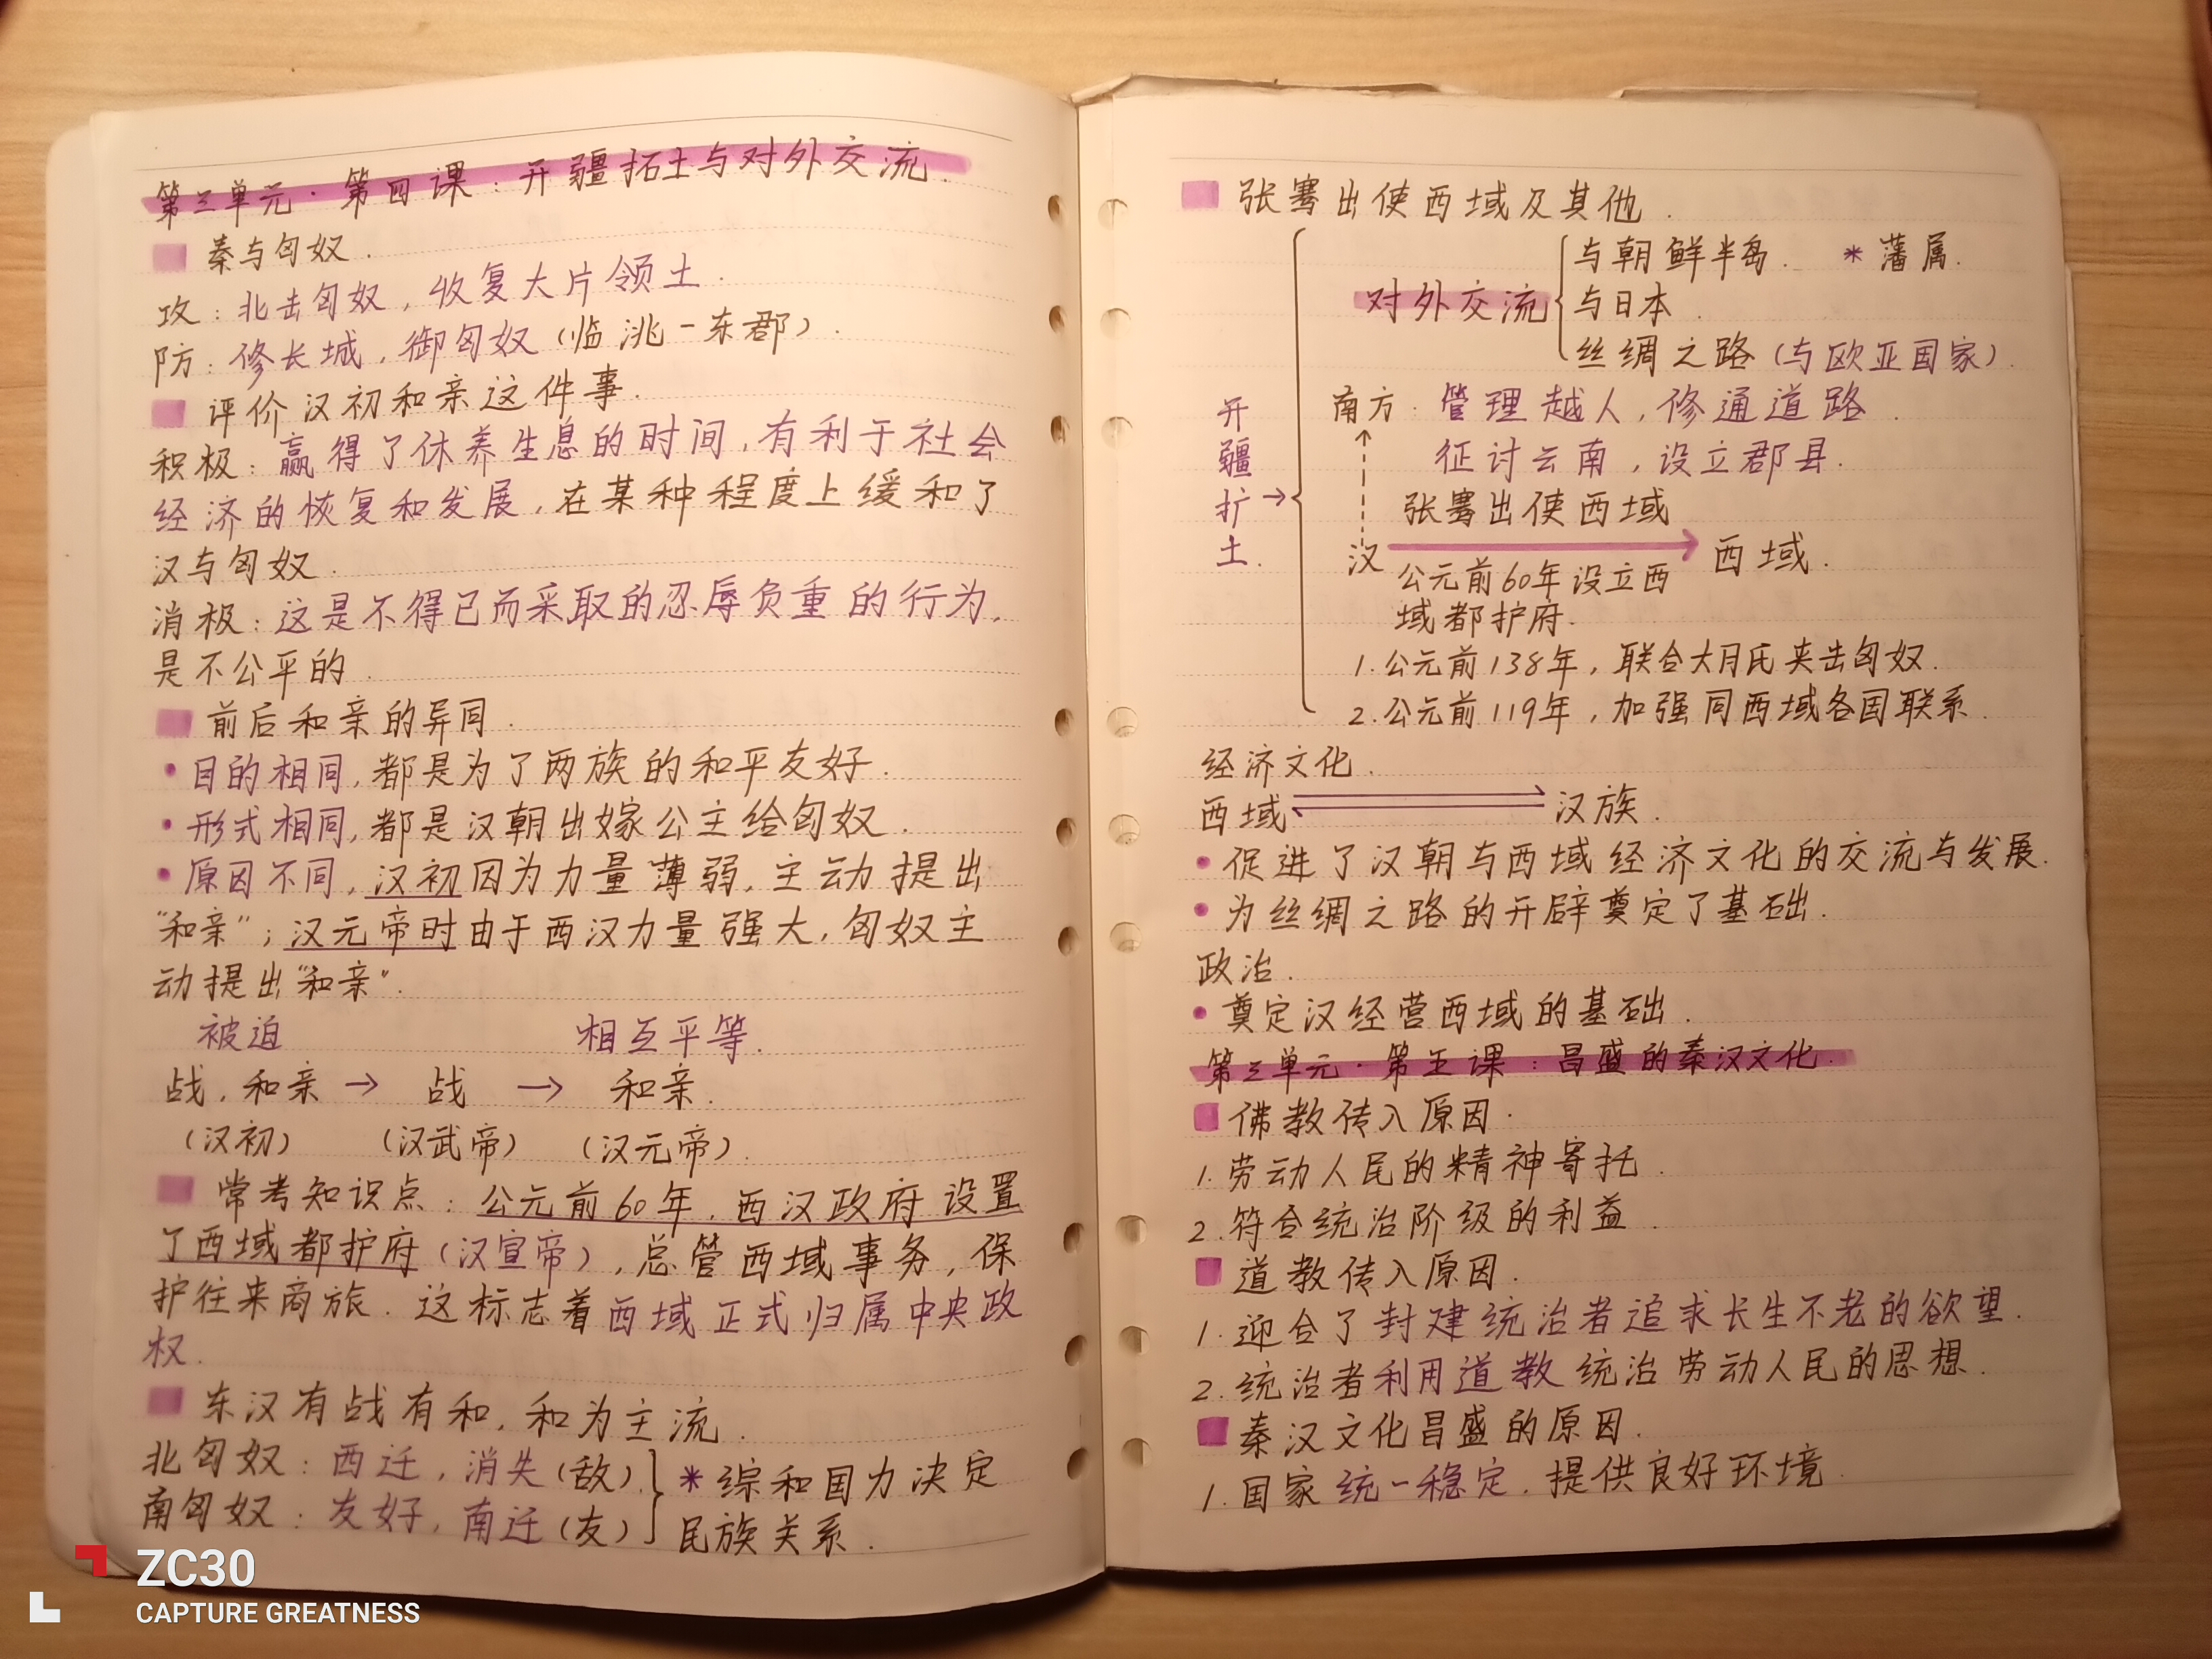 第三单元·第四课：开疆拓土与对外交流.
秦与匈奴.
攻：北击匈奴，收复大片领土.
防：修长城，御匈奴（临洮－东郡）.
评价汉初和亲这件事.
积极：赢得了休养生息的时间，有利于社会
经济的恢复和发展，在某种程度上缓和了
汉与匈奴.
消极：这是不得已而采取的忍辱负重的行为，
是不公平的.
前后和亲的异同.
·目的相同，都是为了两族的和平友好.
·形式相同，都是汉朝出嫁公主给匈奴.
·原因不同，汉初因为力量薄弱，主动提出
“和亲”；汉元帝时由于西汉力量强大，匈奴主
动提出“和亲”.
被迫 相互平等.
战，和亲→ 战 → 和亲.
（汉初） （汉武帝） （汉元帝）.
常考知识点：公元前60年，西汉政府设置
了西域都护府（汉宣帝），总管西域事务，保
护往来商旅. 这标志着西域正式归属中央政
权.
东汉有战有和，和为主流.
北匈奴：西迁，消失（敌）
南匈奴：友好，南迁（友）
*综和国力决定
民族关系.
张骞出使西域及其他.
开疆扩土.→
对外交流
与朝鲜半岛. *藩属.
与日本.
丝绸之路（与欧亚国家）.
南方：管理越人，修通道路.
征讨云南，设立郡县.
张骞出使西域
汉 → 西域.
公元前60年设立西
域都护府.
1.公元前138年，联合大月氏夹击匈奴.
2.公元前119年，加强同西域各国联系.
经济文化.
西域 汉族.
·促进了汉朝与西域经济文化的交流与发展.
·为丝绸之路的开辟奠定了基础.
政治.
·奠定汉经营西域的基础.
第三单元·第五课：昌盛的秦汉文化.
佛教传入原因.
1.劳动人民的精神寄托.
2.符合统治阶级的利益.
道教传入原因.
1.迎合了封建统治者追求长生不老的欲望.
2.统治者利用道教统治劳动人民的思想.
秦汉文化昌盛的原因.
1.国家统一稳定，提供良好环境.
ZC30
CAPTURE GREATNESS